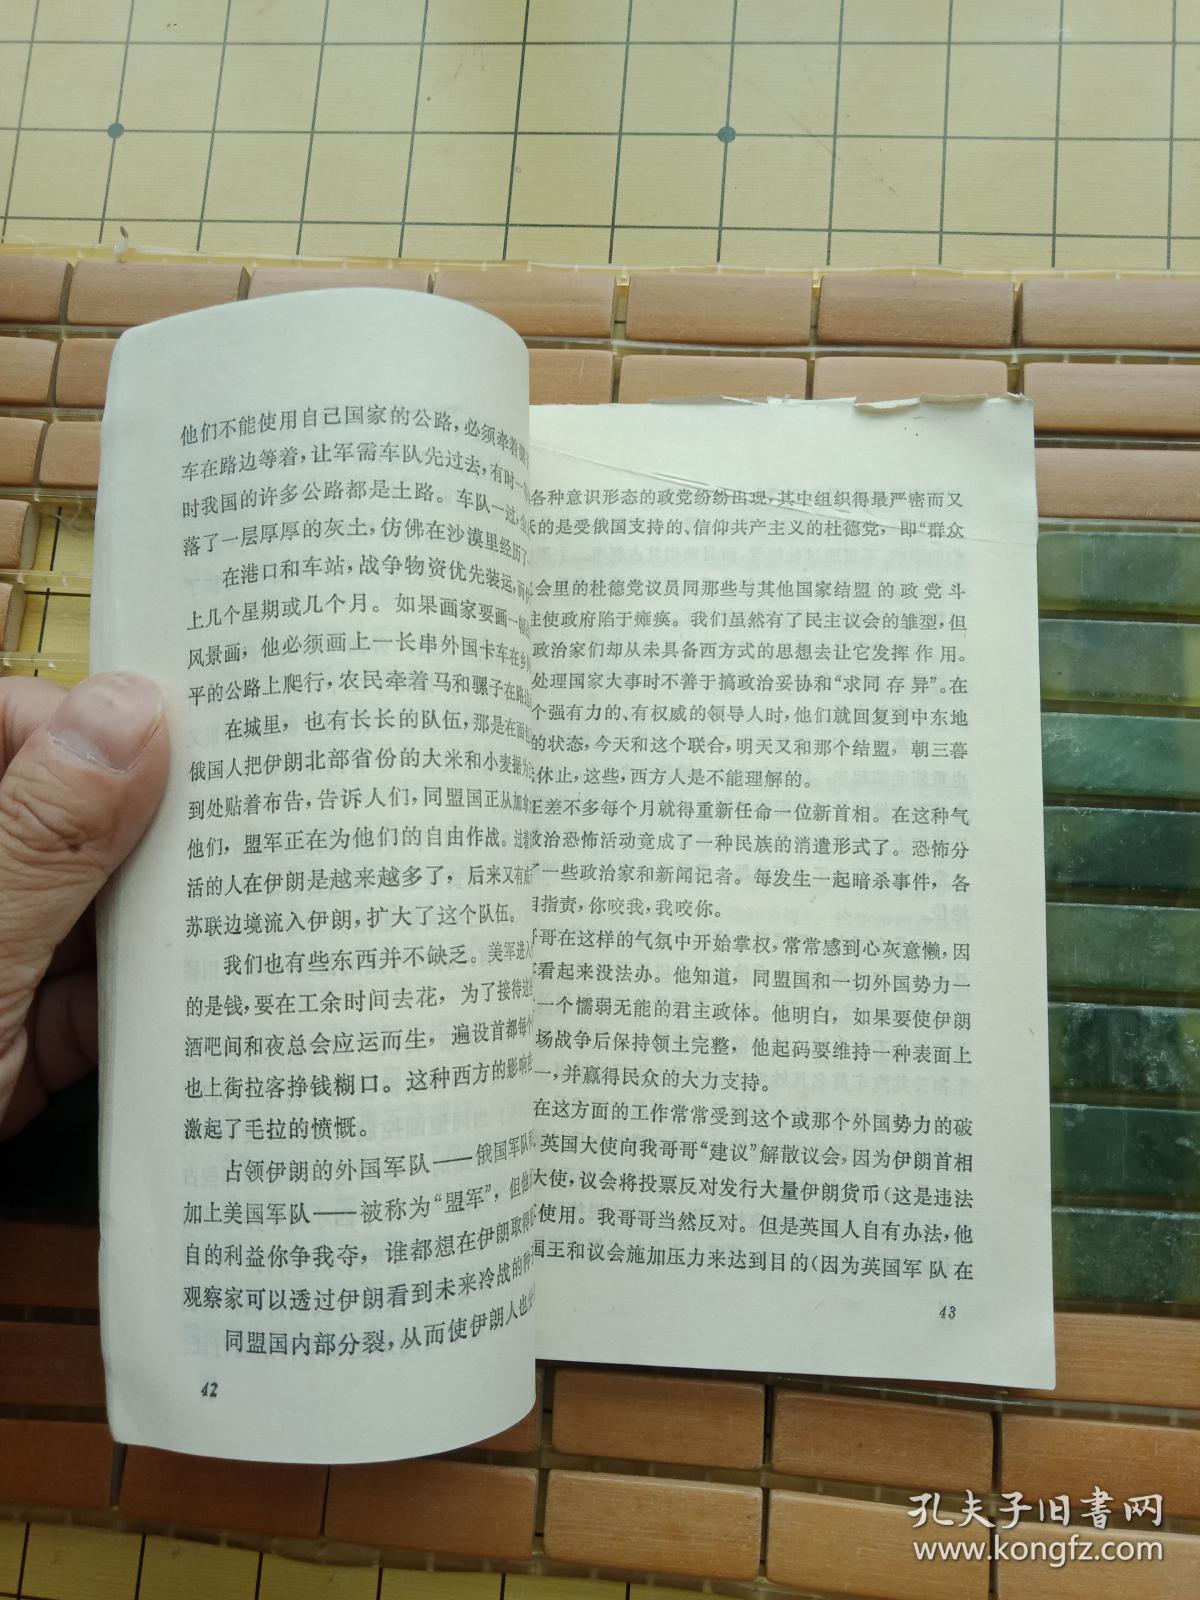 他们不能使用自己国家的公路，必须牵着骡
车在路边等着，让军需车队先过去，有时一
时我国的许多公路都是土路。车队一过，
落了一层厚厚的灰土，仿佛在沙漠里经历了
在港口和车站，战争物资优先装运，而
上几个星期或几个月。如果画家要画一幅
风景画，他必须画上一长串外国卡车在乡
平的公路上爬行，农民牵着马和骡子在路边
在城里，也有长长的队伍，那是在面包
俄国人把伊朗北部省份的大米和小麦据为
到处贴着布告，告诉人们，同盟国正从加拿
他们，盟军正在为他们的自由作战。过着
活的人在伊朗是越来越多了，后来又有成
苏联边境流入伊朗，扩大了这个队伍。
我们也有些东西并不缺乏。美军进入
的是钱，要在工余时间去花，为了接待这些
酒吧间和夜总会应运而生，遍设首都每个
也上街拉客挣钱糊口。这种西方的影响在
激起了毛拉的愤慨。
占领伊朗的外国军队——俄国军队
加上美国军队——被称为“盟军”，但他
自的利益你争我夺，谁都想在伊朗取得
观察家可以透过伊朗看到未来冷战的种
同盟国内部分裂，从而使伊朗人也
42
各种意识形态的政党纷纷出现，其中组织得最严密而又
的是受俄国支持的、信仰共产主义的杜德党，即“群众
会里的杜德党议员同那些与其他国家结盟的政党斗
主使政府陷于瘫痪。我们虽然有了民主议会的雏型，但
政治家们却从未具备西方式的思想去让它发挥作用。
处理国家大事时不善于搞政治妥协和“求同存异”。在
个强有力的、有权威的领导人时，他们就回复到中东地
的状态，今天和这个联合，明天又和那个结盟，朝三暮
休止，这些，西方人是不能理解的。
王差不多每个月就得重新任命一位新首相。在这种气
政治恐怖活动竟成了一种民族的消遣形式了。恐怖分
了一些政治家和新闻记者。每发生一起暗杀事件，各
指责，你咬我，我咬你。
哥在这样的气氛中开始掌权，常常感到心灰意懒，因
看起来没法办。他知道，同盟国和一切外国势力一
一个懦弱无能的君主政体。他明白，如果要使伊朗
场战争后保持领土完整，他起码要维持一种表面上
一，并赢得民众的大力支持。
在这方面的工作常常受到这个或那个外国势力的破
英国大使向我哥哥“建议”解散议会，因为伊朗首相
大使，议会将投票反对发行大量伊朗货币（这是违法
使用。我哥哥当然反对。但是英国人自有办法，他
国王和议会施加压力来达到目的（因为英国军队在
43
孔夫子旧书网
www.kongfz.com